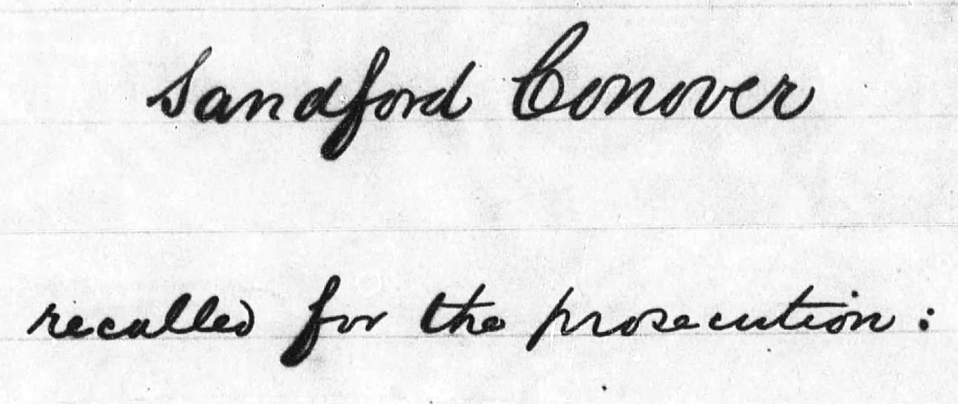 Sandford Conover
recalled for the prosecution: